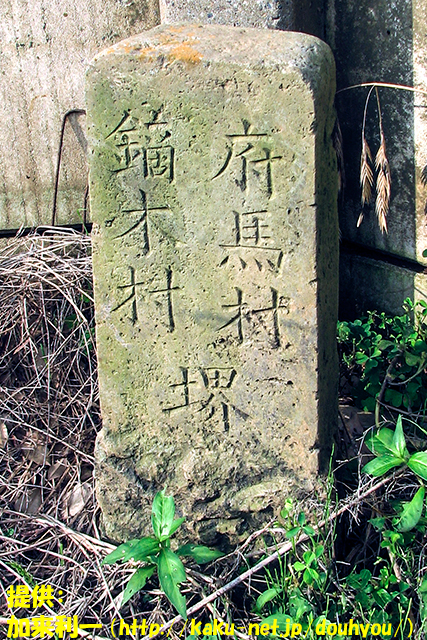 府馬村
鏑木村
堺
提供:
加来利一(http://kaku.net.jp/douhyou/)